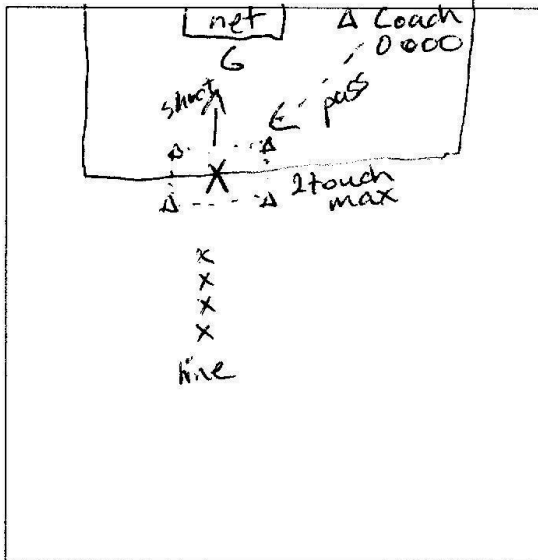 net
Δ Coach
0000
G
shoot
pass
X
2 touch
max
x
x
x
x
line